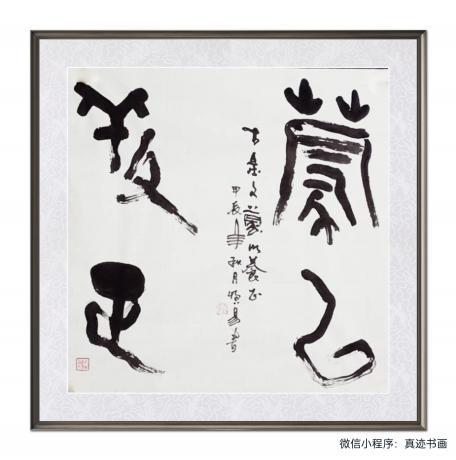 蒙以
古金文蒙以養正
甲辰年秋月易書
養正
微信小程序：真迹书画